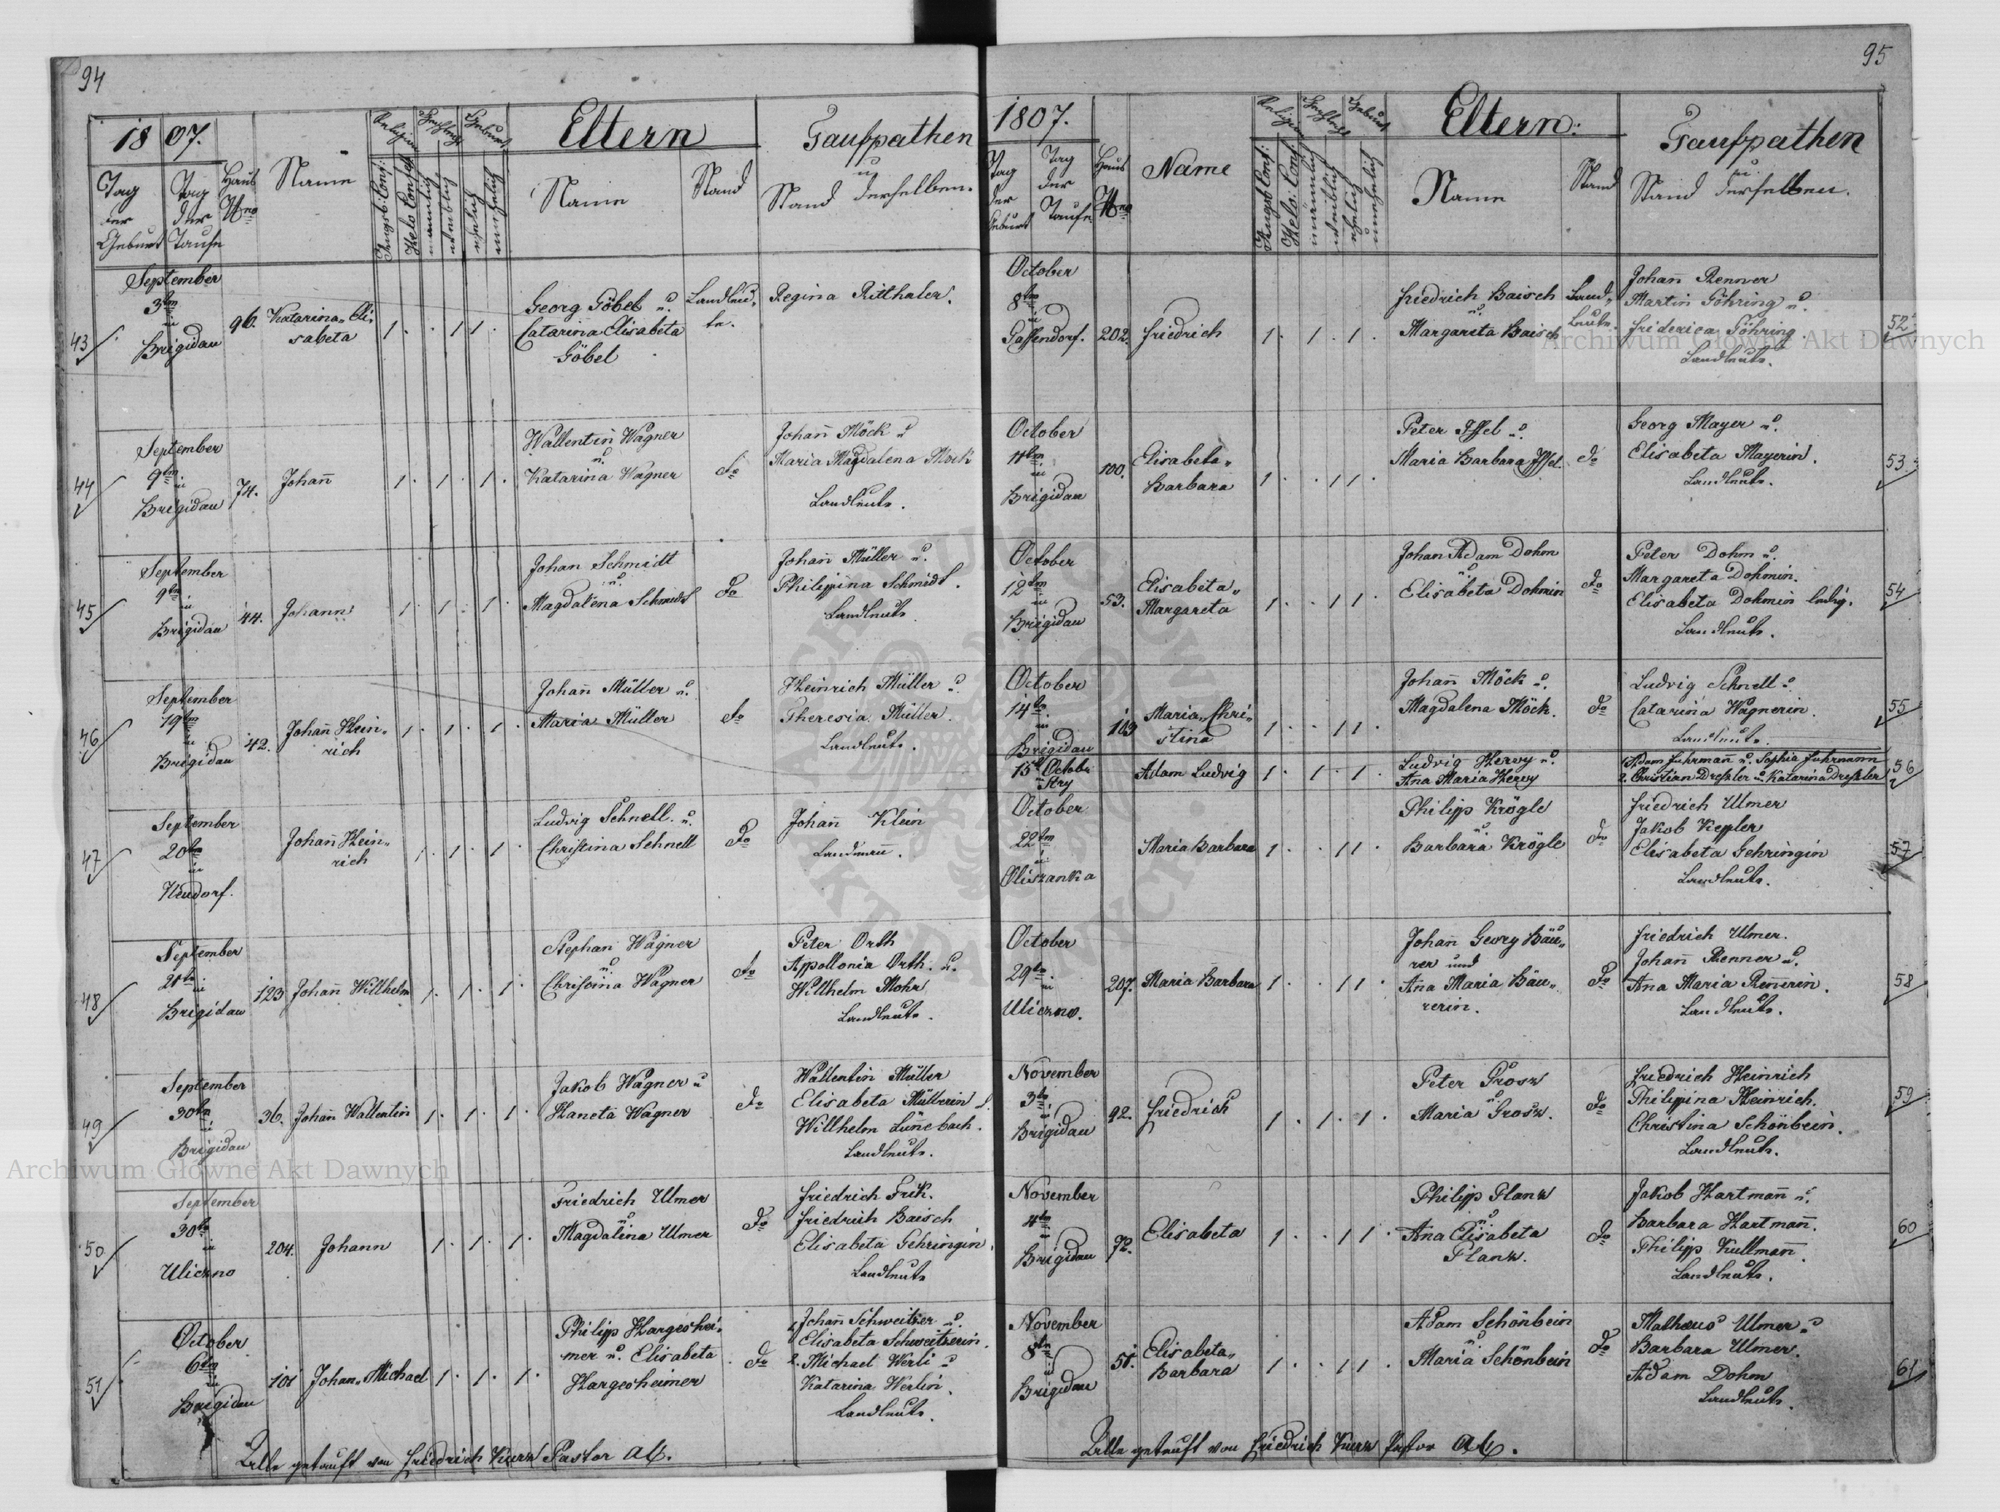 94
1807.
Eltern
Taufpathen
u
Stand derselben.
Tag
der
Geburt
Tag
der
Taufe
Haus
Nro
Name
Religion
Geburt
Augsb: Conf:
Helv: Conf:
männlich
weiblich
ehelich
unehelich
Name
Stand
43
September
3tn
in
Brigidau
96.
Katarina Eli-
sabeta
1. . 1 1.
Georg Göbel u.
Catarina Elisabeta
Göbel
Landleu-
te.
Regina Ritthaler.
44
September
9tn
in
Brigidau
74.
Johann̄
1. 1. 1.
Wallentin Wagner
u.
Katarina Wagner
do
Johan̄ Möck u
Maria Magdalena Möck
Landleute.
45
September
9tn
in
Brigidau
44.
Johann
1. 1. 1.
Johan Schmidt
u.
Magdalena Schmidt
do
Johan̄ Müller u.
Philippina Schmidt.
Landleute
46
September
19tn
in
Brigidau
42.
Johan̄ Hein-
rich
1. 1. 1.
Johan̄ Müller u.
Maria Müller
do
Heinrich Müller u.
Theresia Müller.
Landleute.
47
September
20tn
in
Neudorf.
Johan̄ Hein-
rich
1. 1. 1.
Ludvig Schnell. u.
Christina Schnell
do
Johan̄ Klein
Landman̄.
48
September
21tn
in
Brigidau
123
Johan̄ Willhelm
1. 1. 1.
Stephan Wagner
u.
Christina Wagner
do
Peter Orth
Appollonia Orth. u.
Willhelm Mohr
Landleute.
49
September
30tn
in
Brigidau
36.
Johan̄ Wallentin
1. 1. 1.
Jakob Wagner u
Haneta Wagner
do
Wallentin Müller
Elisabeta Müllerin
Willhelm Lünebach.
Landleute.
50
September
30tn
in
Uliczno
204.
Johann
1. 1. 1.
Friedrich Ulmer
u.
Magdalina Ulmer
do
Friedrich Frik.
Friedrich Baisch
Elisabeta Gehringin.
Landleute
51
October
6tn
in
Brigidau
101
Johan̄ Michael
1. 1. 1.
Philipp Hargeshei-
mer u. Elisabeta
Hargesheimer
do
Johan̄ Schweitzer u.
Elisabeta Schweitzerin.
2. Michael Werli u
Katarina Werlin.
Landleute.
Alle getauft von Friedrich Kurz Pastor
95
1807.
Eltern:
Taufpathen
u.
Stand derselben.
Tag
der
Geburt
Tag
der
Taufe
Haus
Nro
Name
Religion
Geburt
Augsb: Conf:
Helv: Conf
männlich
weiblich
ehelich
unehelich
Name
Stand
October
8tn
in
Gassendorf.
202.
Friedrich
1. 1. 1.
Friedrich Baisch
u.
Margareta Baisch
Land-
leute.
Johan̄ Renner
Martin Göhring u.
Friderica Göhring
Landleute.
52
October
11tn
in
Brigidau
100.
Elisabeta-
Barbara
1. . 1 1.
Peter Issel u.
Maria Barbara Issel.
do
Georg Mayer u.
Elisabeta Mayerin.
Landleute.
53
October
12tn
in
Brigidau
53.
Elisabeta-
Margareta
1. . 1 1.
Johan Adam Dohm
u.
Elisabeta Dohmin
do
Peter Dohm u.
Margareta Dohmin.
Elisabeta Dohmin ledig.
Landleute.
54
October
14tn
in
Brigidau
Maria Chri-
stina
1. . 1 1.
Johan̄ Möck u.
Magdalena Möck.
do
Ludvig Schnell u.
Catarina Wagnerin.
Landleute.
55
15t October
Stry
Adam Ludvig
1. 1. 1.
Ludvig Hervy u.
Ana Maria Hervy
1. Adam Fuhrman̄ u. Sophia Fuhrmann
2. Christian Dreßler u Katarina Dreßler
56
October
22tn
in
Oliszanka
Maria Barbara
1. . 1 1.
Philipp Krögle
u.
Barbara Krögle
do
Friedrich Ulmer
Jakob Keppler
Elisabeta Gehringin
Landleute.
57
October
29tn.
in
Uliczno.
207.
Maria Barbara
1. . 1 1.
Johan̄ Georg Bäu-
rer und
An̄a Maria Bäu-
rerin.
do
Friedrich Ulmer.
Johan̄ Renner u.
An̄a Maria Ren̄erin.
Landleute.
58
November
3tn
in
Brigidau
92.
Friedrich
1. 1. 1.
Peter Grosz
u
Maria Grosz.
do
Friedrich Heinrich
Philippina Heinrich.
Christina Schönbein.
Landleute.
59
November
4tn
in
Brigidau
72.
Elisabeta
1. . 1 1.
Philipp Planz
u.
Ana Elisabeta
Planz.
do
Jakob Hartman̄ u.
Barbara Hartman̄.
Philipp Kullman̄.
Landleute.
60
November
8tn
in
Brigidau
51.
Elisabeta-
Barbara
1. . 1 1.
Adam Schönbein
u.
Maria Schönbein
do
Matheus Ulmer u
Barbara Ulmer.
Adam Dohm
Landleute.
61
Alle getauft von Friedrich Kurz Pastor
Archiwum Główne Akt Dawnych
Archiwum Główne Akt Dawnych